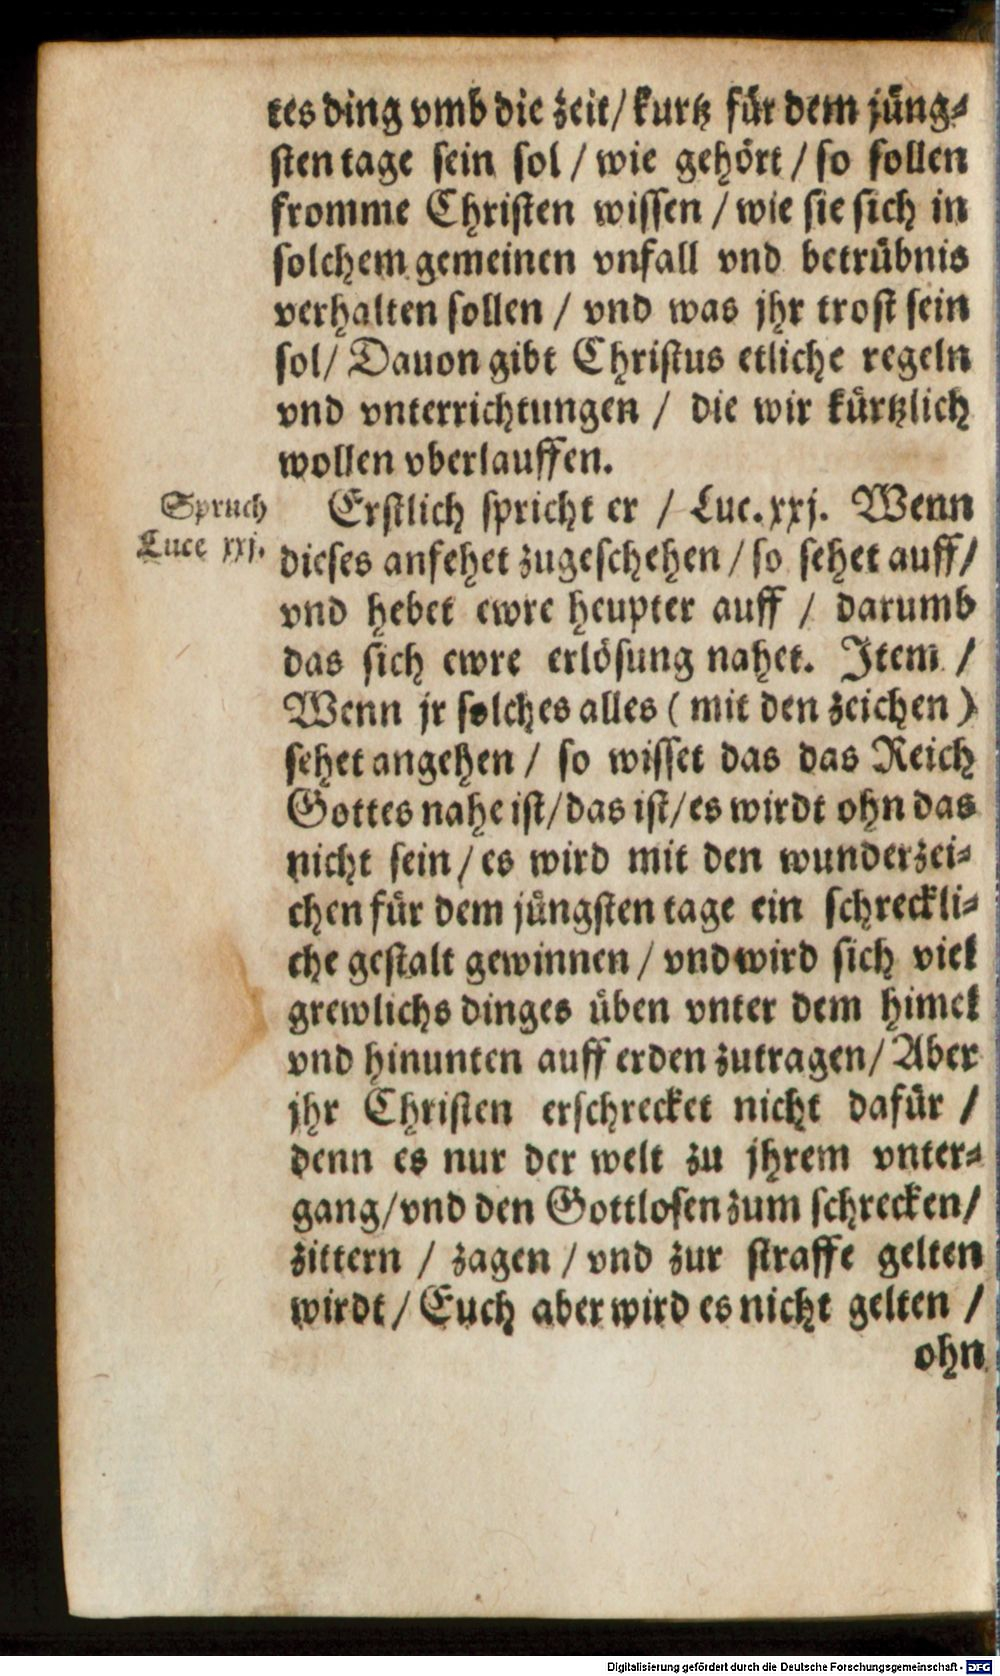 tes ding vmb die zeit / kurtz für dem jüng-
sten tage sein sol / wie gehört / so sollen
fromme Christen wissen / wie sie sich in
solchem gemeinen vnfall vnd betrübnis
verhalten sollen / vnd was jhr trost sein
sol / Dauon gibt Christus etliche regeln
vnd vnterrichtungen / die wir kürtzlich
wollen vberlauffen.
Spruch
Luce xxj.
Erstlich spricht er / Luc. xxj. Wenn
dieses anfehet zugeschehen / so sehet auff /
vnd hebet ewre heupter auff / darumb
das sich ewre erlösung nahet. Item /
Wenn jr solches alles ( mit den zeichen )
sehet angehen / so wisset das das Reich
Gottes nahe ist / das ist / es wirdt ohn das
nicht sein / es wird mit den wunderzei-
chen für dem jüngsten tage ein schreckli-
che gestalt gewinnen / vnd wird sich viel
grewlichs dinges üben vnter dem himel
vnd hinunten auff erden zutragen / Aber
jhr Christen erschrecket nicht dafür /
denn es nur der welt zu jhrem vnter-
gang / vnd den Gottlosen zum schrecken /
zittern / zagen / vnd zur straffe gelten
wirdt / Euch aber wird es nicht gelten /
ohn
Digitalisierung gefördert durch die Deutsche Forschungsgemeinschaft - DFG